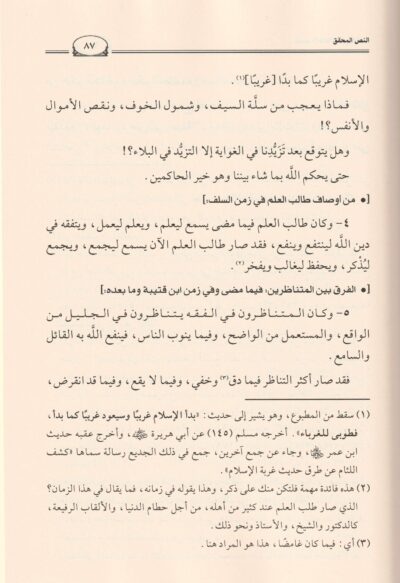 النص المحقق
٨٧
الإسلام غريبًا كما بدًا [غريبًا](١).
فماذا يعجب من سلَّة السيف، وشمول الخوف، ونقص الأموال
والأنفس؟!
وهل يتوقع بعد تَزَيُّدِنا في الغواية إلا التزيُّد في البلاء؟!
حتى يحكم اللَّه بما شاء بيننا وهو خير الحاكمين.
[● من أوصاف طالب العلم في زمن السلف:]
٤- وكان طالب العلم فيما مضى يسمع ليعلم، ويعلم ليعمل، ويتفقه في
دين اللَّه لينتفع وينفع، فقد صار طالب العلم الآن يسمع ليجمع، ويجمع
ليُذْكر، ويحفظ ليغالب ويفخر(٢).
[● الفرق بين المتناظرين؛ فيما مضى وفي زمن ابن قتيبة وما بعده:]
٥- وكان المتناظرون في الفقه يتناظرون في الجليل من
الواقع، والمستعمل من الواضح، وفيما ينوب الناس، فينفع اللَّه به القائل
والسامع.
فقد صار أكثر التناظر فيما دق(٣) وخفي، وفيما لا يقع، وفيما قد انقرض،
(١) سقط من المطبوع، وهو يشير إلى حديث: «بدأ الإسلام غريبًا وسيعود غريبًا كما بدأ،
فطوبى للغرباء». أخرجه مسلم (١٤٥) عن أبي هريرة ﵁، وأخرج عقبه حديث
ابن عمر ﵄، وجاء عن جمع آخرين، جمع في ذلك الجديع رسالة سماها «كشف
اللثام عن طرق حديث غربة الإسلام».
(٢) هذه فائدة مهمة فلتكن منك على ذكر، وهذا يقوله في زمانه، فما يقال في هذا الزمان؟
الذي صار طلب العلم عند كثير من أهله، من أجل حطام الدنيا، والألقاب الرفيعة،
كالدكتور والشيخ، والأستاذ ونحو ذلك.
(٣) أي: فيما كان غامضًا، هذا هو المراد هنا.